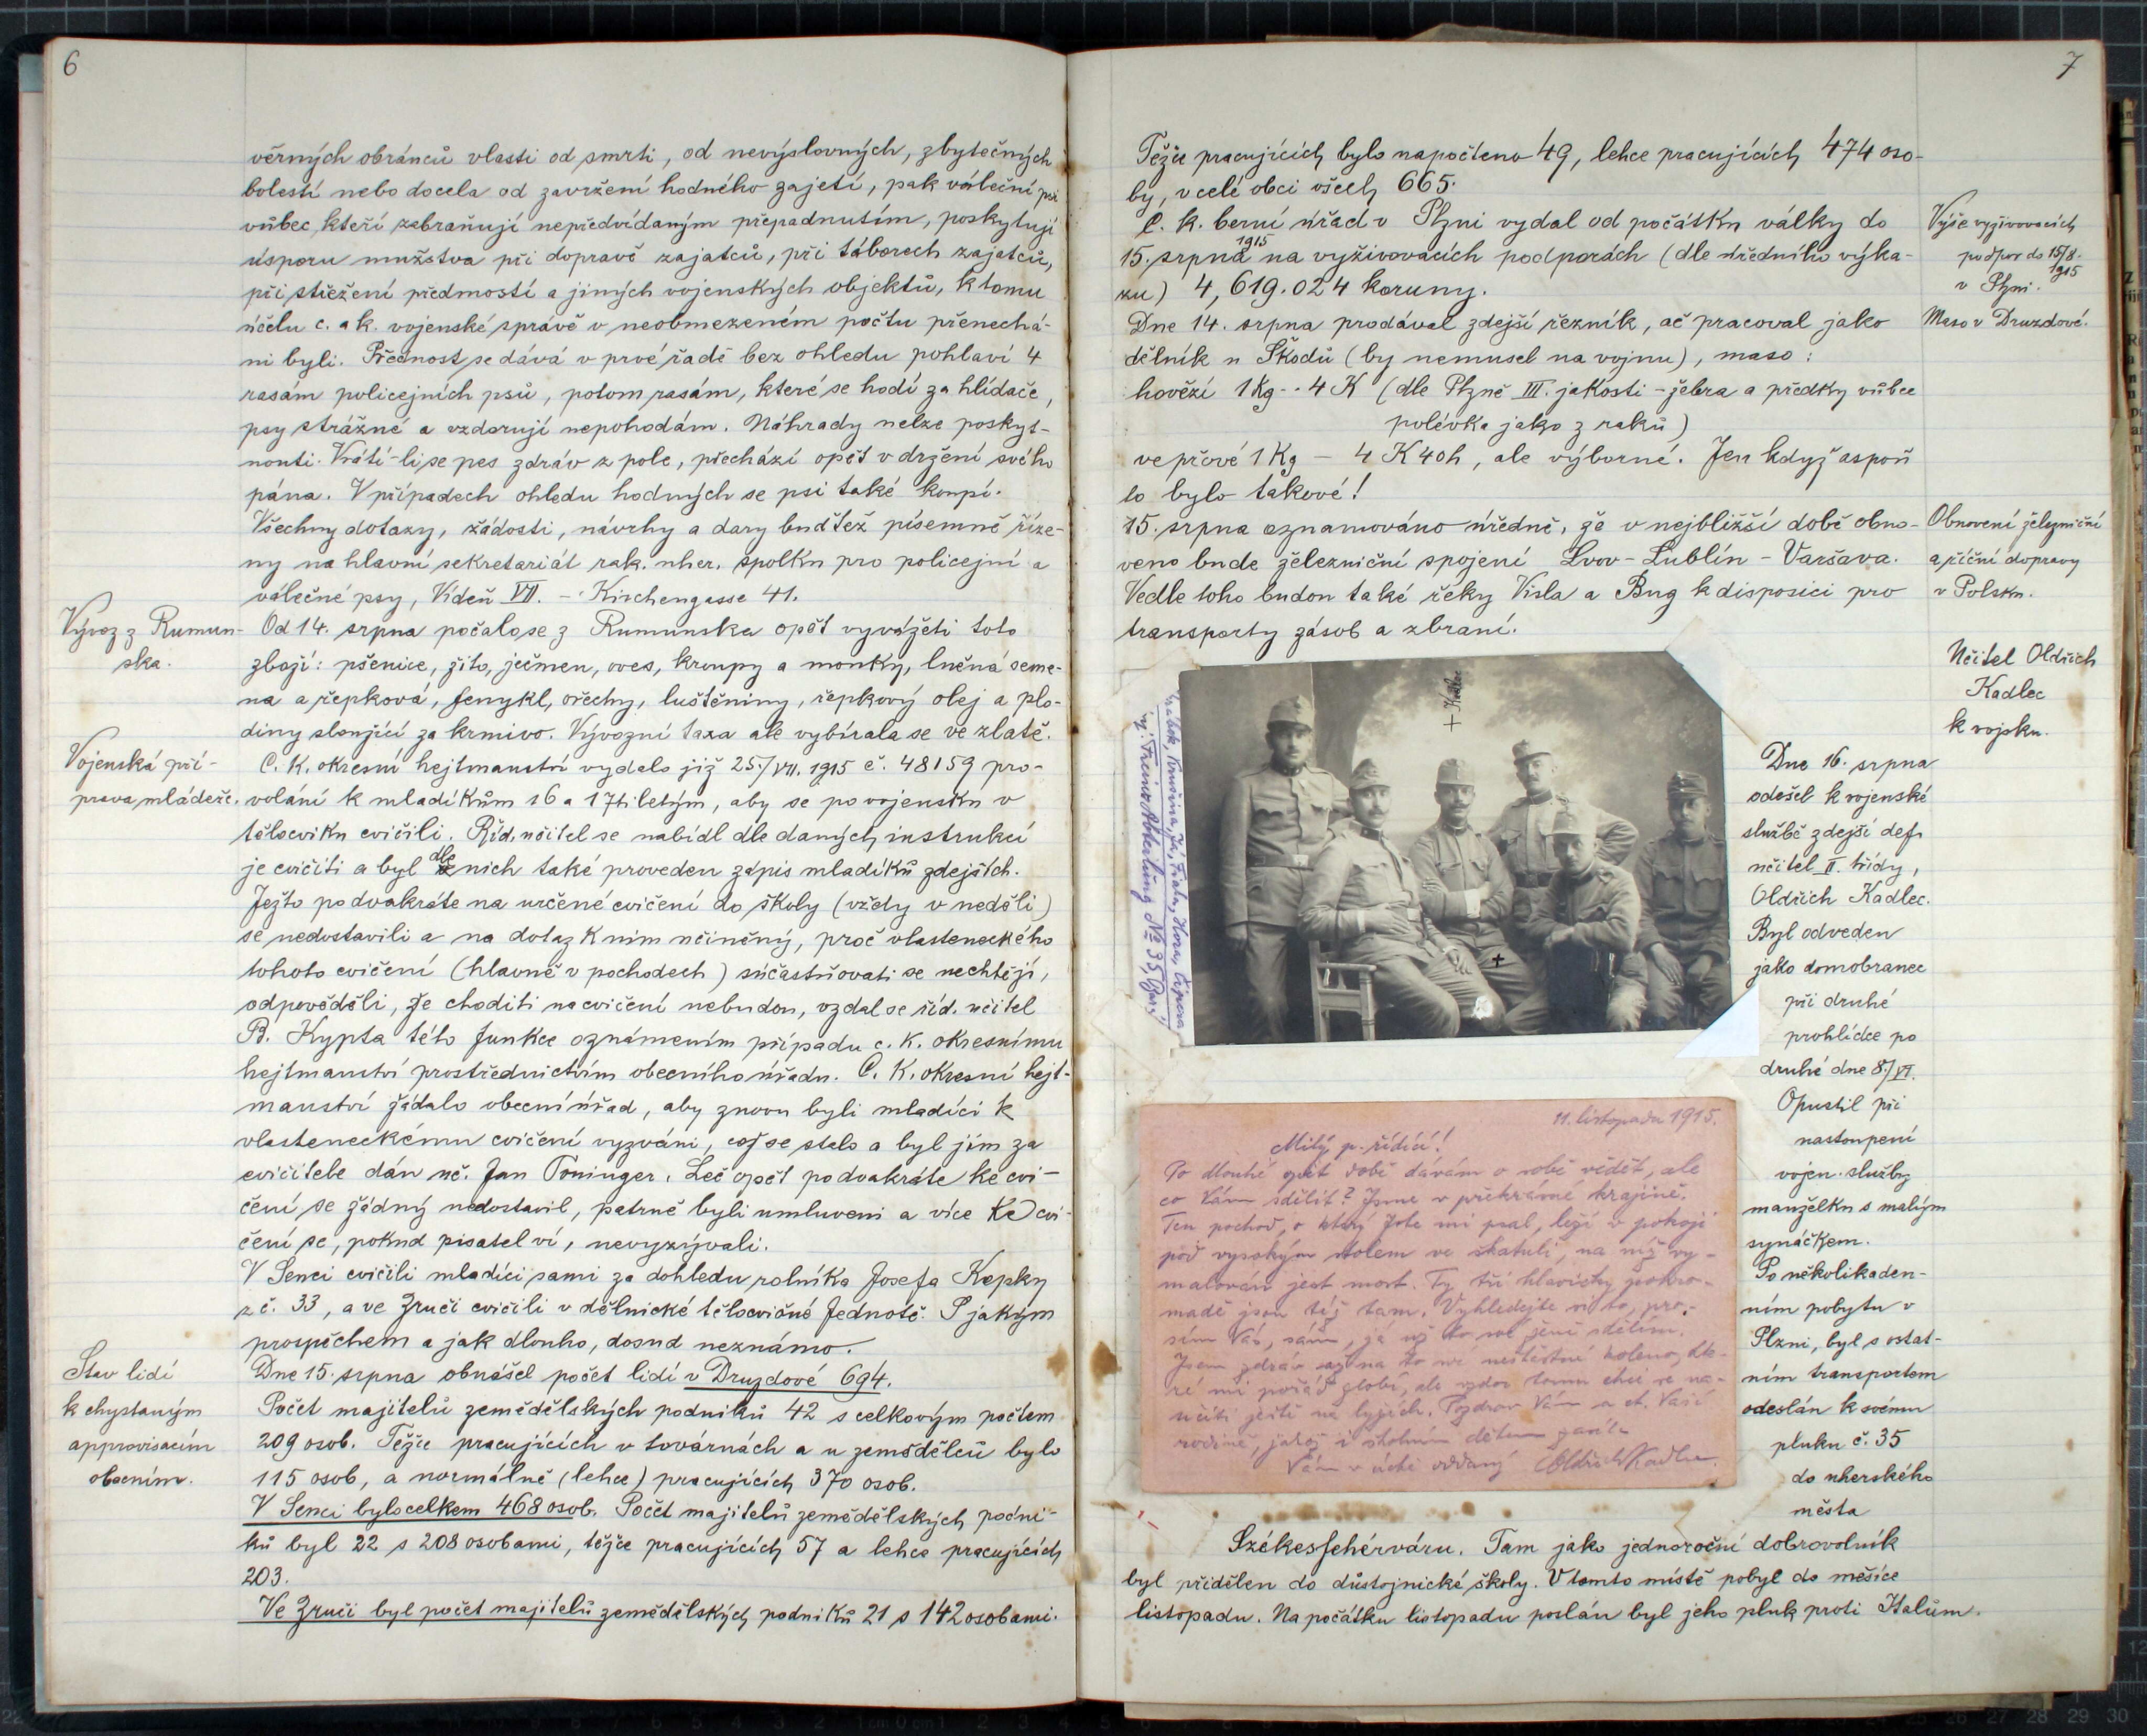 6
věrných obránců vlasti od smrti, od nevýslovných, zbytečných
bolestí nebo docela od zavržení hodného zajetí, pak váleční psi
vůbec, kteří zabraňují nepředvídaným přepadnutím, poskytují
úsporu mužstva při dopravě zajatců, při táborech zajatců,
při střežení předmostí a jiných vojenských objektů, k tomu
účelu c. a k. vojenské správě v neobmezeném počtu přenechá-
ni byli. Přednost se dává v prvé řadě bez ohledu pohlaví 4
rasám policejních psů, potom rasám, které se hodí za hlídače,
psy strážné a vzdorují nepohodám. Náhrady nelze poskyt-
nouti. Vrátí-li se pes zdráv z pole, přechází opět v držení svého
pána. V případech ohledu hodných se psi také koupí.
Všechny dotazy, žádosti, návrhy a dary buďtež písemně říze-
ny na hlavní sekretariát rak. uher. spolku pro policejní a
válečné psy, Vídeň VII. - Kirchengasse 41.
Vývoz z Rumun-
ska.
Od 14. srpna počalo se z Rumunska opět vyvážeti toto
zboží: pšenice, žito, ječmen, oves, kroupy a mouky, lněná seme-
na a řepková, fenykl, ořechy, luštěniny, řepkový olej a plo-
diny sloužící za krmivo. Vývozní taxa ale vybírala se ve zlatě.
Vojenská pří-
prava mládeže.
C. K. okresní hejtmanství vydalo již 25./VII. 1915 č. 48159 pro-
volání k mladíkům 16 a 17ti letým, aby se po vojensku v
tělocviku cvičili. Říd. učitel se nabídl dle daných instrukcí
je cvičiti a byl dle nich také proveden zápis mladíků zdejších.
Ježto po dvakráte na určené cvičení do školy (vždy v neděli)
se nedostavili a na dotaz k nim učiněný, proč vlasteneckého
tohoto cvičení (hlavně v pochodech) súčastňovati se nechtějí,
odpověděli, že choditi na cvičení nebudou, vzdal se říd. učitel
B. Kypta této funkce oznámením případu c. k. okresnímu
hejtmanství prostřednictvím obecního úřadu. C. K. okresní hejt-
manství žádalo obecní úřad, aby znovu byli mladíci k
vlasteneckému cvičení vyzváni, což se stalo a byl jim za
cvičitele dán uč. Jan Toninger. Leč opět po dvakráte ke cvi-
čení se žádný nedostavil, patrně byli umluveni a více ke cvi-
čení se, pokud pisatel ví, nevyzývali.
V Senci cvičili mladíci sami za dohledu rolníka Josefa Kepky
z č. 33, a ve Zruči cvičili v dělnické tělocvičné Jednotě. S jakým
prospěchem a jak dlouho, dosud neznámo.
Stav lidí
k chystaným
approvisacím
obecním.
Dne 15. srpna obnášel počet lidí v Druzdové 694.
Počet majitelů zemědělských podniků 42 s celkovým počtem
209 osob. Těžce pracujících v továrnách a u zemědělců bylo
115 osob, a normálně (lehce) pracujících 370 osob.
V Senci bylo celkem 468 osob. Počet majitelů zemědělských podni-
ků byl 22 s 208 osobami, těžce pracujících 57 a lehce pracujících
203.
Ve Zruči byl počet majitelů zemědělských podniků 21 s 142 osobami.
7
Těžce pracujících bylo napočteno 49, lehce pracujících 474 oso-
by, v celé obci všech 665.
C. k. berní úřad v Plzni vydal od počátku války do
15. srpna 1915 na vyživovacích podporách (dle úředního výka-
zu) 4,619.024 koruny.
Výše vyživovacích
podpor do 15/8.
1915
v Plzni.
Dne 14. srpna prodával zdejší řezník, ač pracoval jako
dělník u Škodů (by nemusel na vojnu), maso:
hovězí 1 Kg - - 4 K (dle Plzně III. jakosti - žebra a předky vůbec
polévka jako z raků)
vepřové 1 Kg - 4 K 40 h, ale výborné. Jen když aspoň
to bylo takové!
Maso v Druzdové.
15. srpna oznamováno úředně, že v nejbližší době obno-
veno bude železniční spojení Lvov - Lublín - Varšava.
Vedle toho budou také řeky Visla a Bug k disposici pro
transporty zásob a zbraní.
Obnovení železniční
a říční dopravy
v Polsku.
Učitel Oldřich
Kadlec
k vojsku.
+ Kadlec
Dne 16. srpna
odešel k vojenské
službě zdejší def.
učitel II. třídy,
Oldřich Kadlec.
Byl odveden
jako domobranec
při druhé
prohlídce po
druhé dne 8./VI.
Opustil při
nastoupení
vojen. služby
manželku s malým
synáčkem.
Po několikaden-
ním pobytu v
Plzni, byl s ostat-
ním transportem
odeslán k svému
pluku č. 35
do uherského
města
11. listopadu 1915.
Milý p. řídící!
Po dlouhé opět době dávám o sobě vědět, ale
co Vám sdělit? Jsme v překrásné krajině.
Ten pochod, o který jste mi psal, leží v pokoji
pod vysokým stolem ve škatuli, na níž vy-
malován jest most. Ty tři hlavičky pohro-
madě jsou též tam. Vyhledejte si to, pro-
sím Vás, sám, já už to své ženě sdělím.
Jsem zdráv až na to mé nešťastné koleno, kte-
ré mi pořád zlobí, ale vzdor tomu chci se na-
učiti ještě na lyžích. Pozdrav Vám a ct. Vaší
rodině, jakož i školním dětem zasílá
Vám v úctě oddaný Oldřich Kadlec.
Székesfehérváru. Tam jako jednoroční dobrovolník
byl přidělen do důstojnické školy. V tomto místě pobyl do měsíce
listopadu. Na počátku listopadu poslán byl jeho pluk proti Italům.